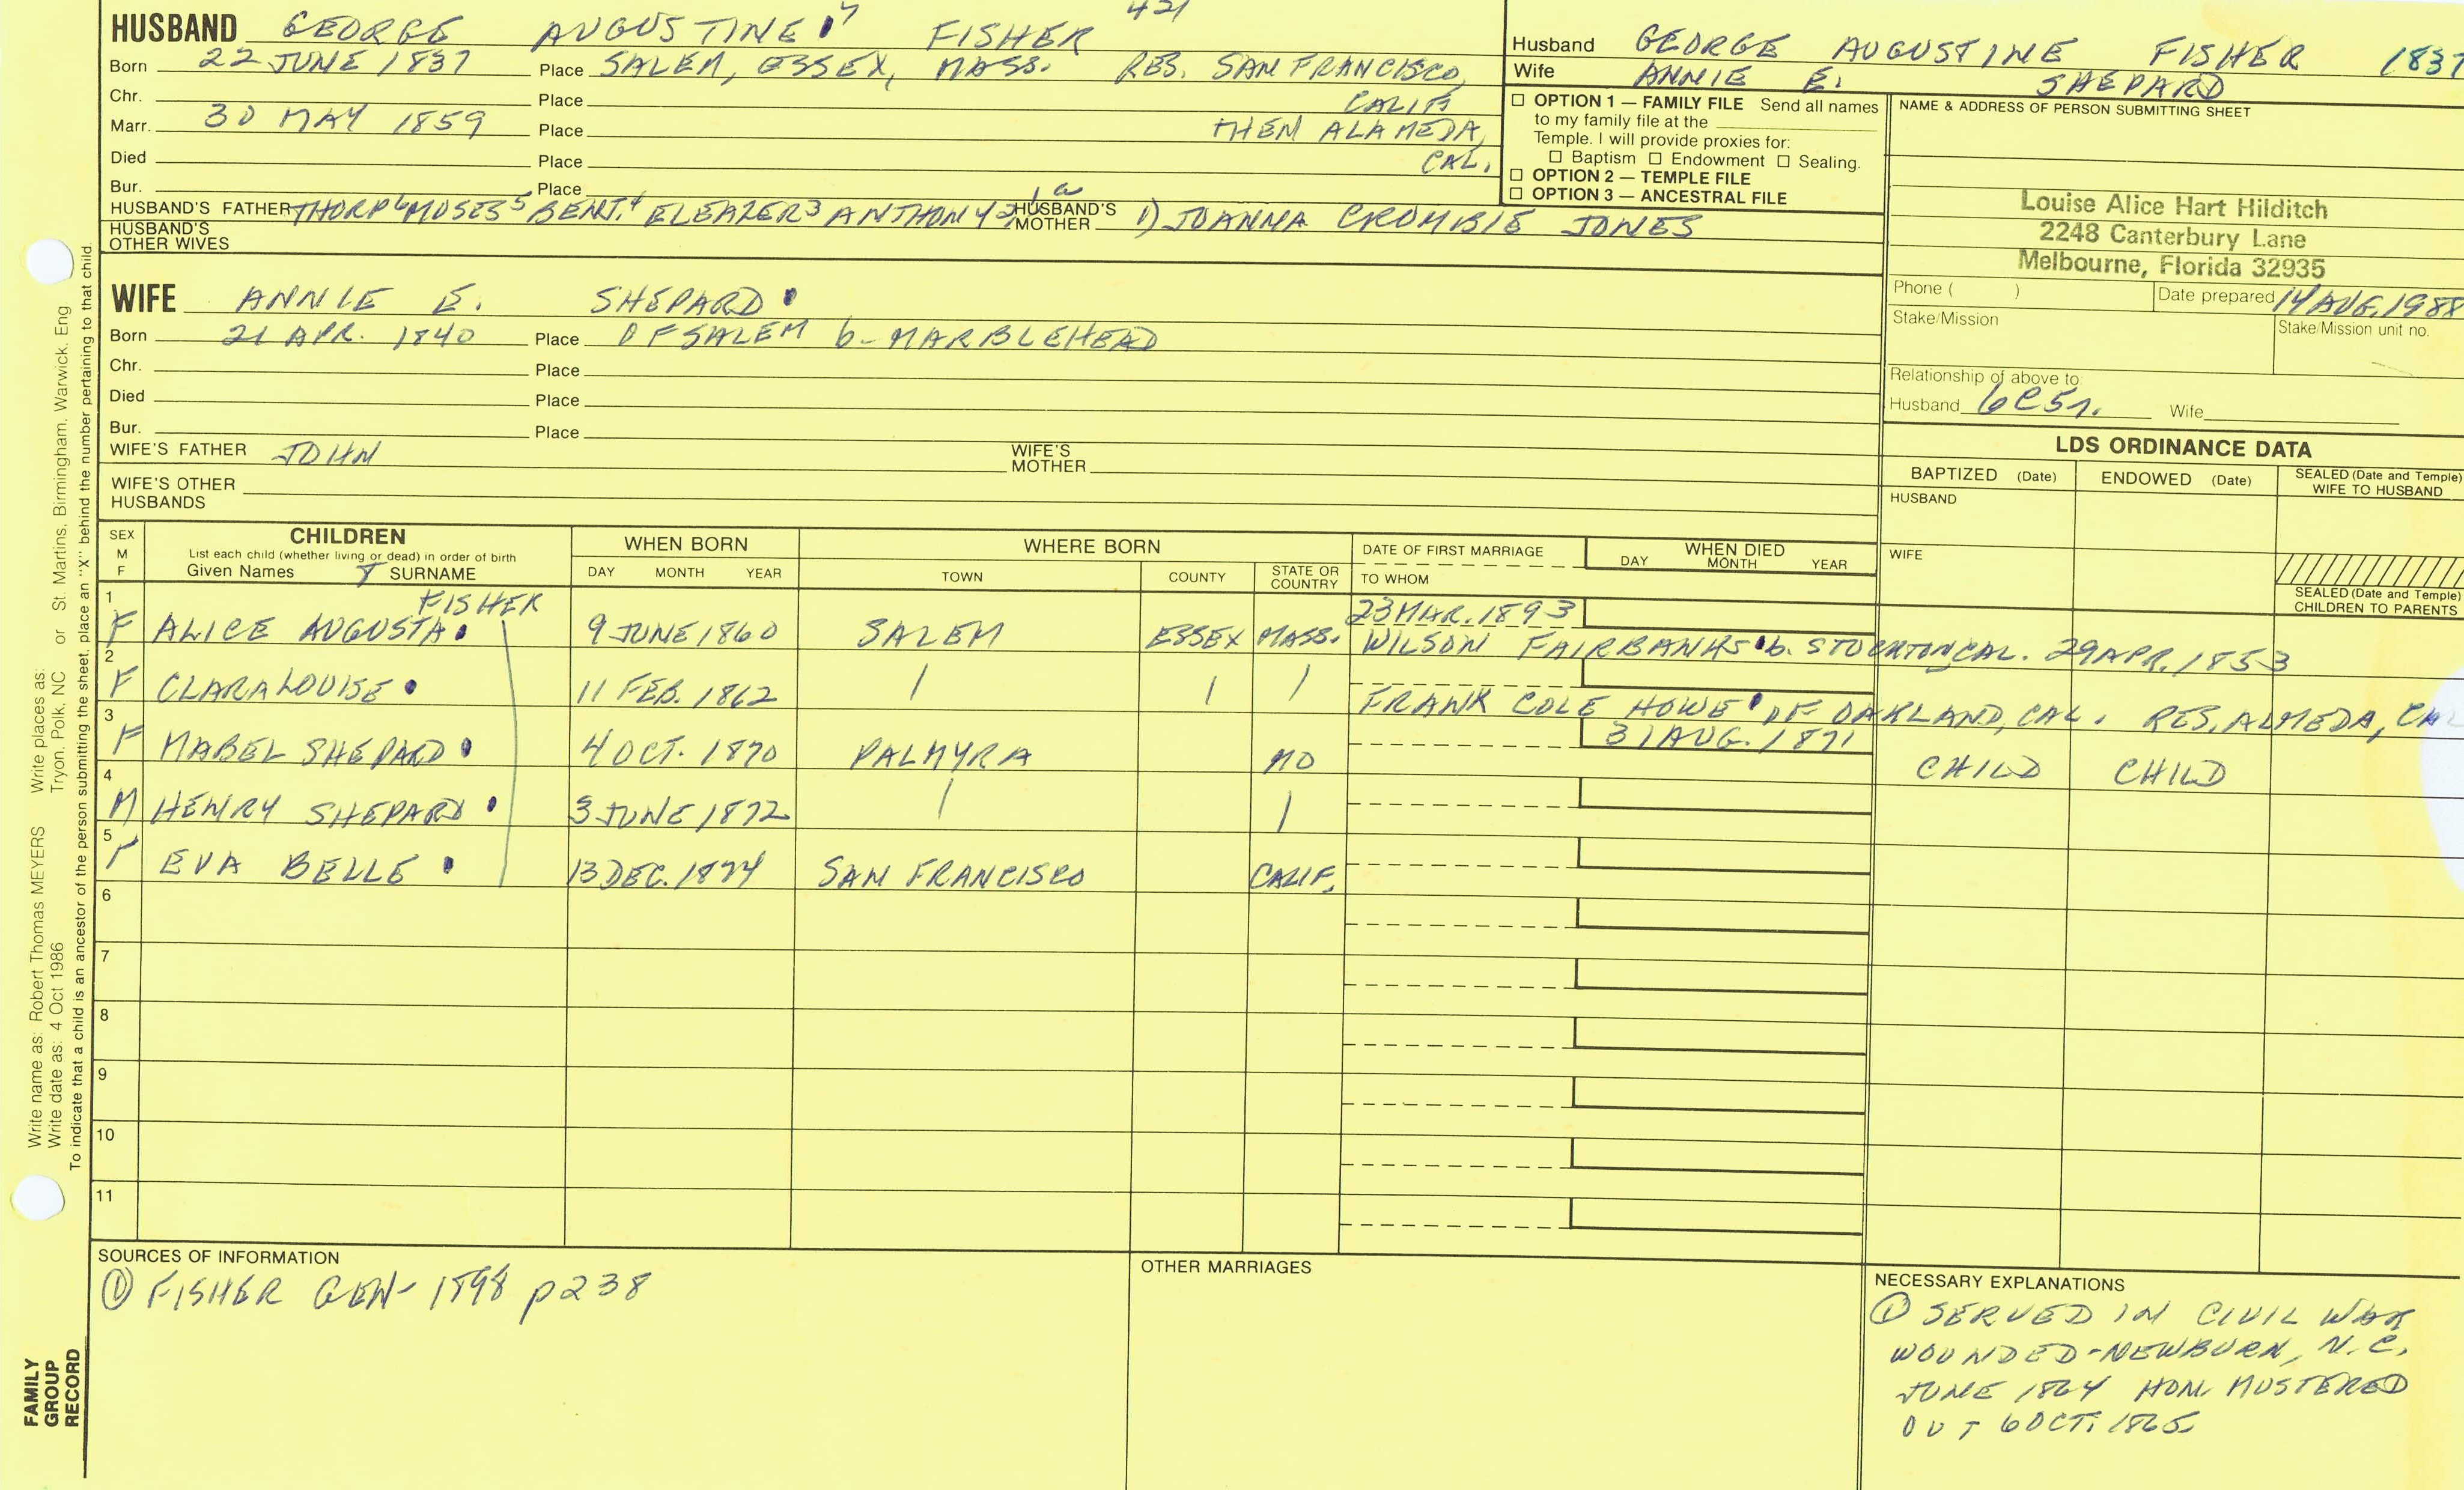 421
HUSBAND GEORGE AUGUSTINE 7 FISHER
Born 22 JUNE 1837 Place SALEM, ESSEX, MASS. RES. SAN FRANCISCO,
Chr. Place CALIF.
Marr. 30 MAY 1859 Place THEN ALAMEDA,
Died Place CAL.
Bur. Place
HUSBAND'S FATHER THORP 6 MOSES 5 BENJ. 4 ELEAZER 3 ANTHONY 2, 1 a HUSBAND'S MOTHER 1) JOANNA CROMBIE JONES
HUSBAND'S OTHER WIVES
Husband GEORGE AUGUSTINE FISHER 1837
Wife ANNIE E. SHEPARD
☐ OPTION 1 — FAMILY FILE Send all names
to my family file at the
Temple. I will provide proxies for:
☐ Baptism ☐ Endowment ☐ Sealing.
☐ OPTION 2 — TEMPLE FILE
☐ OPTION 3 — ANCESTRAL FILE
NAME & ADDRESS OF PERSON SUBMITTING SHEET
Louise Alice Hart Hilditch
2248 Canterbury Lane
Melbourne, Florida 32935
Phone ( ) Date prepared 14 AUG. 1988
Stake/Mission Stake/Mission unit no.
Relationship of above to:
Husband 6C5r. Wife
WIFE ANNIE E. SHEPARD
Born 21 APR. 1840 Place OF SALEM b- MARBLEHEAD
Chr. Place
Died Place
Bur. Place
WIFE'S FATHER JOHN WIFE'S MOTHER
WIFE'S OTHER HUSBANDS
LDS ORDINANCE DATA
BAPTIZED (Date) ENDOWED (Date) SEALED (Date and Temple) WIFE TO HUSBAND
HUSBAND
WIFE
SEALED (Date and Temple) CHILDREN TO PARENTS
SEX M F
CHILDREN
List each child (whether living or dead) in order of birth
Given Names SURNAME
WHEN BORN
DAY MONTH YEAR
WHERE BORN
TOWN COUNTY STATE OR COUNTRY
DATE OF FIRST MARRIAGE
TO WHOM
WHEN DIED
DAY MONTH YEAR
1 FISHER 23 MAR. 1893
F ALICE AUGUSTA 9 JUNE 1860 SALEM ESSEX MASS. WILSON FAIRBANKS b. STOCKTON, CAL. 29 APR. 1853
2
F CLARA LOUISE 11 FEB. 1862 / / / FRANK COLE HOWE OF OAKLAND, CAL. RES. ALMEDA, CAL
3 31 AUG. 1871
F MABEL SHEPARD 4 OCT. 1870 PALMYRA MO CHILD CHILD
4
M HENRY SHEPARD 3 JUNE 1872 / /
5
F EVA BELLE 13 DEC. 1874 SAN FRANCISCO CALIF.
6
7
8
9
10
11
SOURCES OF INFORMATION
① FISHER GEN- 1898 p238
OTHER MARRIAGES
NECESSARY EXPLANATIONS
① SERVED IN CIVIL WAR
WOUNDED-NEWBURN, N.C.
JUNE 1864 HON. MUSTERED
OUT 6 OCT. 1865
Write name as: Robert Thomas MEYERS Write places as: St. Martins, Birmingham, Warwick, Eng
Write date as: 4 Oct 1986 Tryon, Polk, NC or
To indicate that a child is an ancestor of the person submitting the sheet, place an "X" behind the number pertaining to that child.
FAMILY
GROUP
RECORD